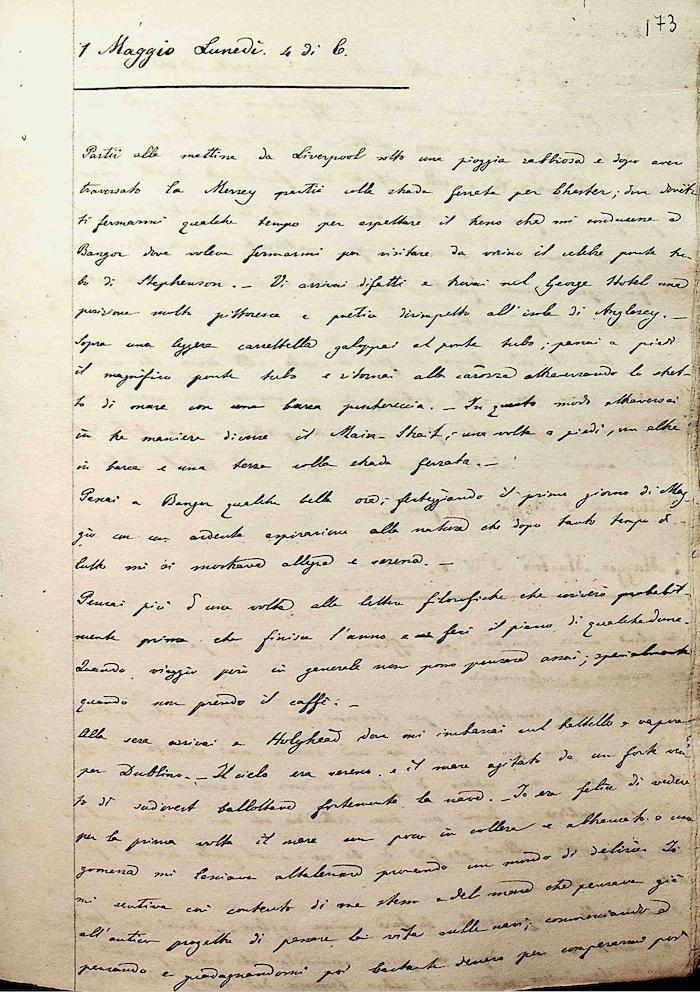 173
1 Maggio Lunedì. 4 di C.
Partii alla mattina da Liverpool sotto una pioggia rabbiosa e dopo aver
traversato la Mersey partii colla strada ferrata per Chester; dove dovet-
ti fermarmi qualche tempo per aspettare il treno che mi conducesse a
Bangor dove voleva fermarmi per visitare da vicino il celebre ponte tu-
bo di Stephenson. — Vi arrivai difatti e trovai nel George Hotel una
posizione molto pittoresca e poetica dirimpetto all'isola di Anglesey. —
Sopra una leggera carrettella galoppai al ponte tubo; passai a piedi
il magnifico ponte tubo e ritornai alla carozza attraversando lo stret-
to di mare con una barca peschereccia. — In questo modo attraversai
in tre maniere diverse il Main-Strait; una volta a piedi, un altra
in barca e una terza sulla strada ferrata. —
Passai a Bangor qualche bella ora; festeggiando il primo giorno di Mag-
gio con un ardente aspirazione alla natura che dopo tanto tempo di
lutto mi si mostrava allegra e serena. —
Pensai più d'una volta alle lettere filosofiche che scriverò probabil-
mente prima che finisca l'anno e feci il piano di qualcheduna.
Quando viaggio però in generale non posso pensare assai; specialmente
quando non prendo il caffè. —
Alla sera arrivai a Holyhead dove mi imbarcai sul battello a vapore
per Dublino. — Il cielo era sereno e il mare agitato da un forte ven-
to di sudovest ballottava fortemente la nave. — Io era felice di vedere
per la prima volta il mare un poco in collera e abbracciato a una
gomena mi lasciava altalenare provando un mondo di delizie. Io
mi sentiva così contento di me stesso e del mare che pensava già
all'antico progetto di passare la vita sulle navi; commerciando e
pensando e guadagnandomi poi bastante denaro per comperarmi